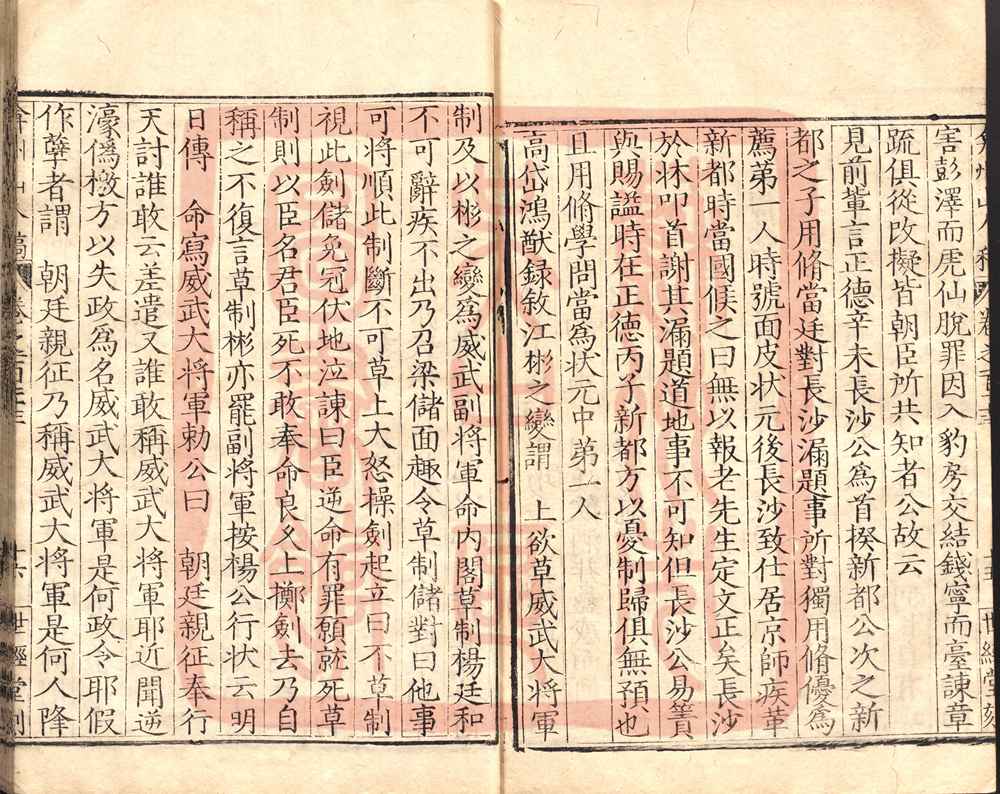 害彭澤而虎仙脫罪因入豹房交結錢寧而臺諫章
疏俱從改擬皆朝臣所共知者公故云
見前輩言正德辛未長沙公為首揆新都公次之新
都之子用脩當廷對長沙漏題事所對獨用脩優為
薦第一人時號面皮状元後長沙致仕居京師疾革
新都時當國候之曰無以報老先生定文正矣長沙
於牀叩首謝其漏題道地事不可知但長沙公易簀
與賜謚時在正德丙子新都方以憂制歸俱無預也
且用脩學問當為状元中第一人
高岱鴻猷録敘江彬之變謂　上欲草威武大將軍
制及以彬之變為威武副將軍命内閣草制楊廷和
不可辭疾不出乃召梁儲面趣令草制儲對曰他事
可將順此制斷不可草上大怒操劍起立曰不草制
視此劍儲免冠伏地泣諫曰臣逆命有罪願就死草
制則以臣名君臣死不敢奉命良乆上擲劍去乃自
稱之不復言草制彬亦罷副將軍按楊公行状云明
日傳　命寫威武大將軍勅公曰　朝廷親征奉行
天討誰敢云差遣又誰敢稱威武大將軍耶近聞逆
濠偽檄方以失政為名威武大將軍是何政令耶假
作孽者謂　朝廷親征乃稱威武大將軍是何人降
弇州山人稿　卷之一百　十六　世經堂刻